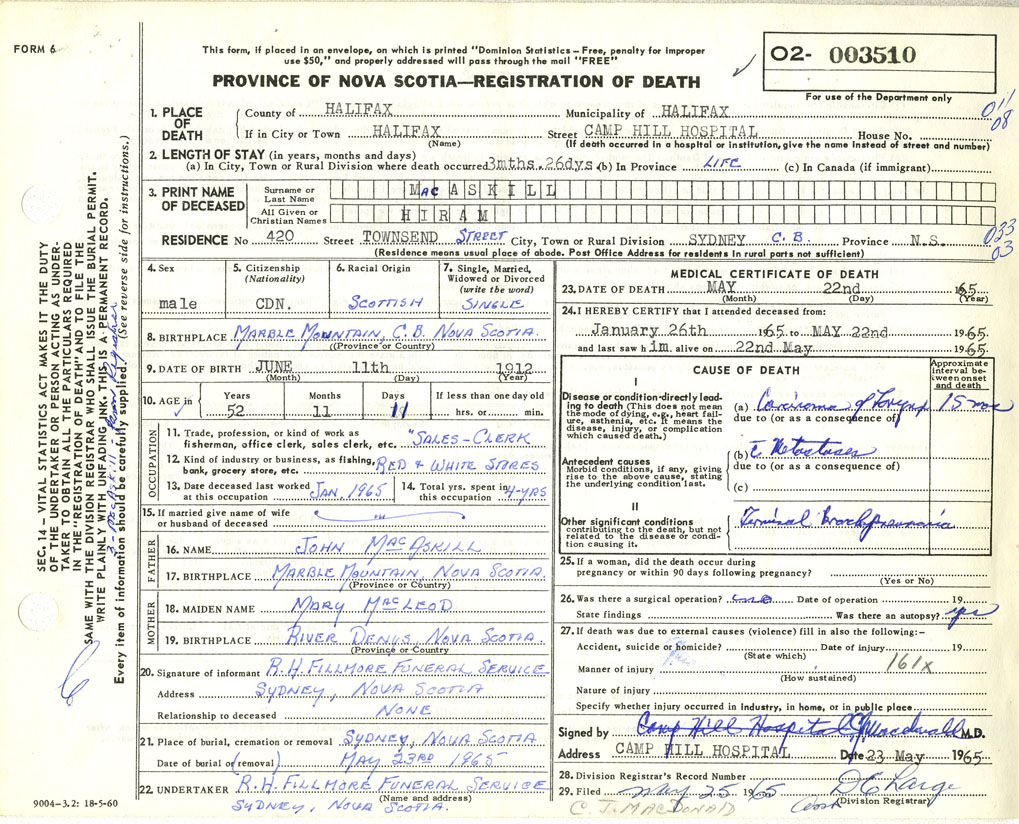 FORM 6
This form, if placed in an envelope, on which is printed "Dominion Statistics – Free, penalty for improper
use $50," and properly addressed will pass through the mail "FREE"
PROVINCE OF NOVA SCOTIA—REGISTRATION OF DEATH
02- 003510
For use of the Department only
011
08
1. PLACE OF DEATH
County of HALIFAX Municipality of HALIFAX
If in City or Town HALIFAX Street CAMP HILL HOSPITAL House No.
(Name) (If death occurred in a hospital or institution, give the name instead of street and number)
2. LENGTH OF STAY (in years, months and days)
(a) In City, Town or Rural Division where death occurred 3mths.26dys. (b) In Province LIFE (c) In Canada (if immigrant)
3. PRINT NAME OF DECEASED
Surname or Last Name MacASKILL
All Given or Christian Names HIRAM
033
03
RESIDENCE No 420 Street TOWNSEND STREET City, Town or Rural Division SYDNEY C.B. Province N.S.
(Residence means usual place of abode. Post Office Address for residents in rural parts not sufficient)
4. Sex
male
5. Citizenship
(Nationality)
CDN.
6. Racial Origin
SCOTTISH
7. Single, Married,
Widowed or Divorced
(write the word)
SINGLE
8. BIRTHPLACE MARBLE MOUNTAIN, C.B. NOVA SCOTIA.
(Province or Country)
9. DATE OF BIRTH JUNE 11th 1912
(Month) (Day) (Year)
10. AGE in
Years Months Days If less than one day old
52 11 11 hrs. or min.
OCCUPATION
11. Trade, profession, or kind of work as
fisherman, office clerk, sales clerk, etc. "SALES-CLERK
12. Kind of industry or business, as fishing,
bank, grocery store, etc. RED & WHITE STORES
13. Date deceased last worked
at this occupation JAN. 1965
14. Total yrs. spent in
this occupation 4-YRS
15. If married give name of wife
or husband of deceased
FATHER
16. NAME JOHN MACASKILL
17. BIRTHPLACE MARBLE MOUNTAIN, NOVA SCOTIA.
(Province or Country)
MOTHER
18. MAIDEN NAME MARY MACLEOD
19. BIRTHPLACE RIVER DENYS NOVA SCOTIA.
(Province or Country)
20. Signature of informant R.H. FILLMORE FUNERAL SERVICE
Address SYDNEY, NOVA SCOTIA
Relationship to deceased NONE
21. Place of burial, cremation or removal SYDNEY, NOVA SCOTIA
Date of burial (or removal) MAY 23RD 1965
22. UNDERTAKER R.H. FILLMORE FUNERAL SERVICE
(Name and address)
SYDNEY, NOVA SCOTIA.
9004–3.2: 18-5-60
MEDICAL CERTIFICATE OF DEATH
23. DATE OF DEATH MAY 22nd 1965
(Month) (Day) (Year)
24. I HEREBY CERTIFY that I attended deceased from:
January 26th 1965 to MAY 22nd 1965
and last saw him alive on 22nd May 1965
CAUSE OF DEATH
Approximate
interval between
onset
and death
I
Disease or condition directly leading
to death (This does not
mean the mode of dying, e.g., heart failure,
asthenia, etc. It means the
disease, injury, or complication
which caused death.)
(a) Carcinoma of Larynx 15 mos
due to (or as a consequence of)
Antecedent causes
Morbid conditions, if any, giving
rise to the above cause, stating
the underlying condition last.
(b) c Metastases
due to (or as a consequence of)
(c)
II
Other significant conditions
contributing to the death, but not
related to the disease or condition
causing it.
Terminal Bronchopneumonia
25. If a woman, did the death occur during
pregnancy or within 90 days following pregnancy?
(Yes or No)
26. Was there a surgical operation? no Date of operation 19
State findings Was there an autopsy? yes
27. If death was due to external causes (violence) fill in also the following:–
Accident, suicide or homicide? Date of injury 19
(State which)
Manner of injury 161x
(How sustained)
Nature of injury
Specify whether injury occurred in industry, in home, or in public place
Signed by Camp Hill Hospital Macdonald M.D.
Address CAMP HILL HOSPITAL Date 23 May 1965
28. Division Registrar's Record Number
29. Filed May 25 1965 D C Large
(Division Registrar)
C. J. MACDONALD
SEC. 14 – VITAL STATISTICS ACT MAKES IT THE DUTY
OF THE UNDERTAKER OR PERSON ACTING AS UNDERTAKER
TO OBTAIN ALL THE PARTICULARS REQUIRED
IN THE "REGISTRATION OF DEATH" AND TO FILE THE
SAME WITH THE DIVISION REGISTRAR WHO SHALL ISSUE THE BURIAL PERMIT.
WRITE PLAINLY WITH UNFADING INK. THIS IS A PERMANENT RECORD.
Every item of information should be carefully supplied. (See reverse side for instructions.)